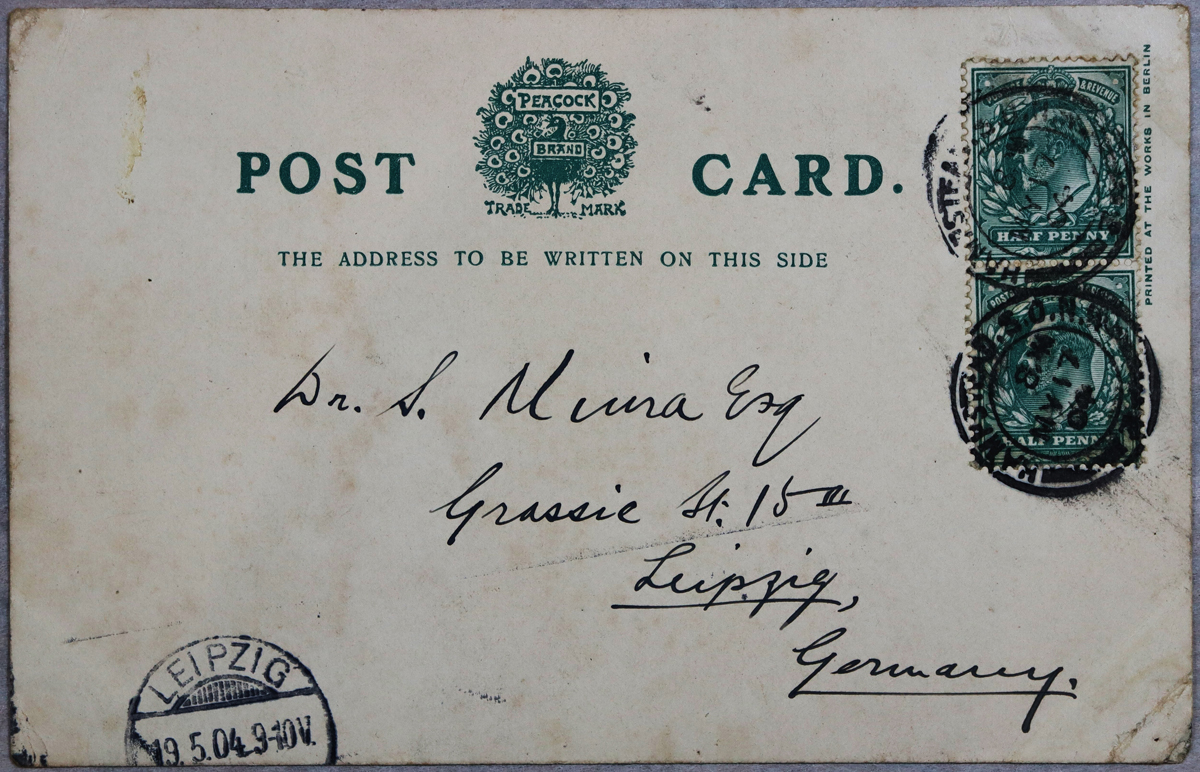 PEACOCK
BRAND
TRADE MARK
POST CARD.
THE ADDRESS TO BE WRITTEN ON THIS SIDE
PRINTED AT THE WORKS IN BERLIN
& REVENUE
HALF PENNY
POST
HALF PENNY
8 PM
MY 17
04
Dr. S. Miura Esq
Grassie St. 15 III
Leipzig,
Germany.
LEIPZIG
19.5.04.9-10V.